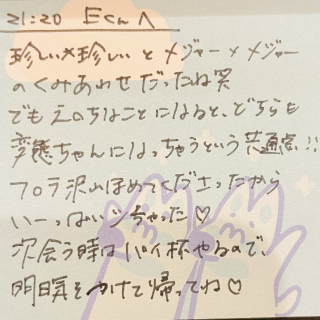 21:20 Eくんへ
珍しい×珍しい とメジャー×メジャー
のくみあわせだったね笑
でもえっちなことになると、どちらも
変態ちゃんになっちゃうという共通点!!
フロラ沢山ほめてくださったから
いーっぱいシちゃった♡
次会う時はパイ杯やるので、
明日気をつけて帰ってね♡